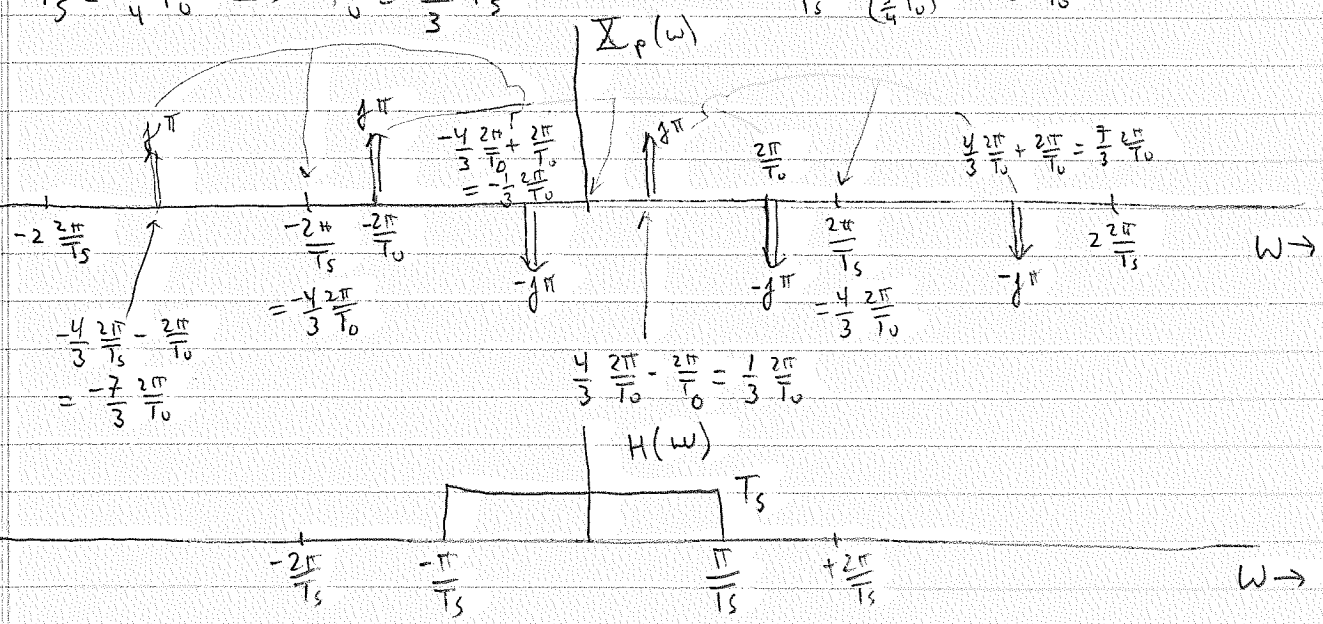 X_p(ω)
jπ
jπ
-4/3 2π/T₀ + 2π/T₀
= -1/3 2π/T₀
jπ
2π/T₀
4/3 2π/T₀ + 2π/T₀ = 7/3 2π/T₀
-2 2π/Ts
-2π/Ts
-2π/T₀
2π/Ts
2 2π/Ts
ω→
= -4/3 2π/T₀
-jπ
-jπ
= 4/3 2π/T₀
-jπ
-4/3 2π/Ts - 2π/T₀
= -7/3 2π/T₀
4/3 2π/T₀ - 2π/T₀ = 1/3 2π/T₀
H(ω)
Ts
-2π/Ts
-π/Ts
π/Ts
+2π/Ts
ω→